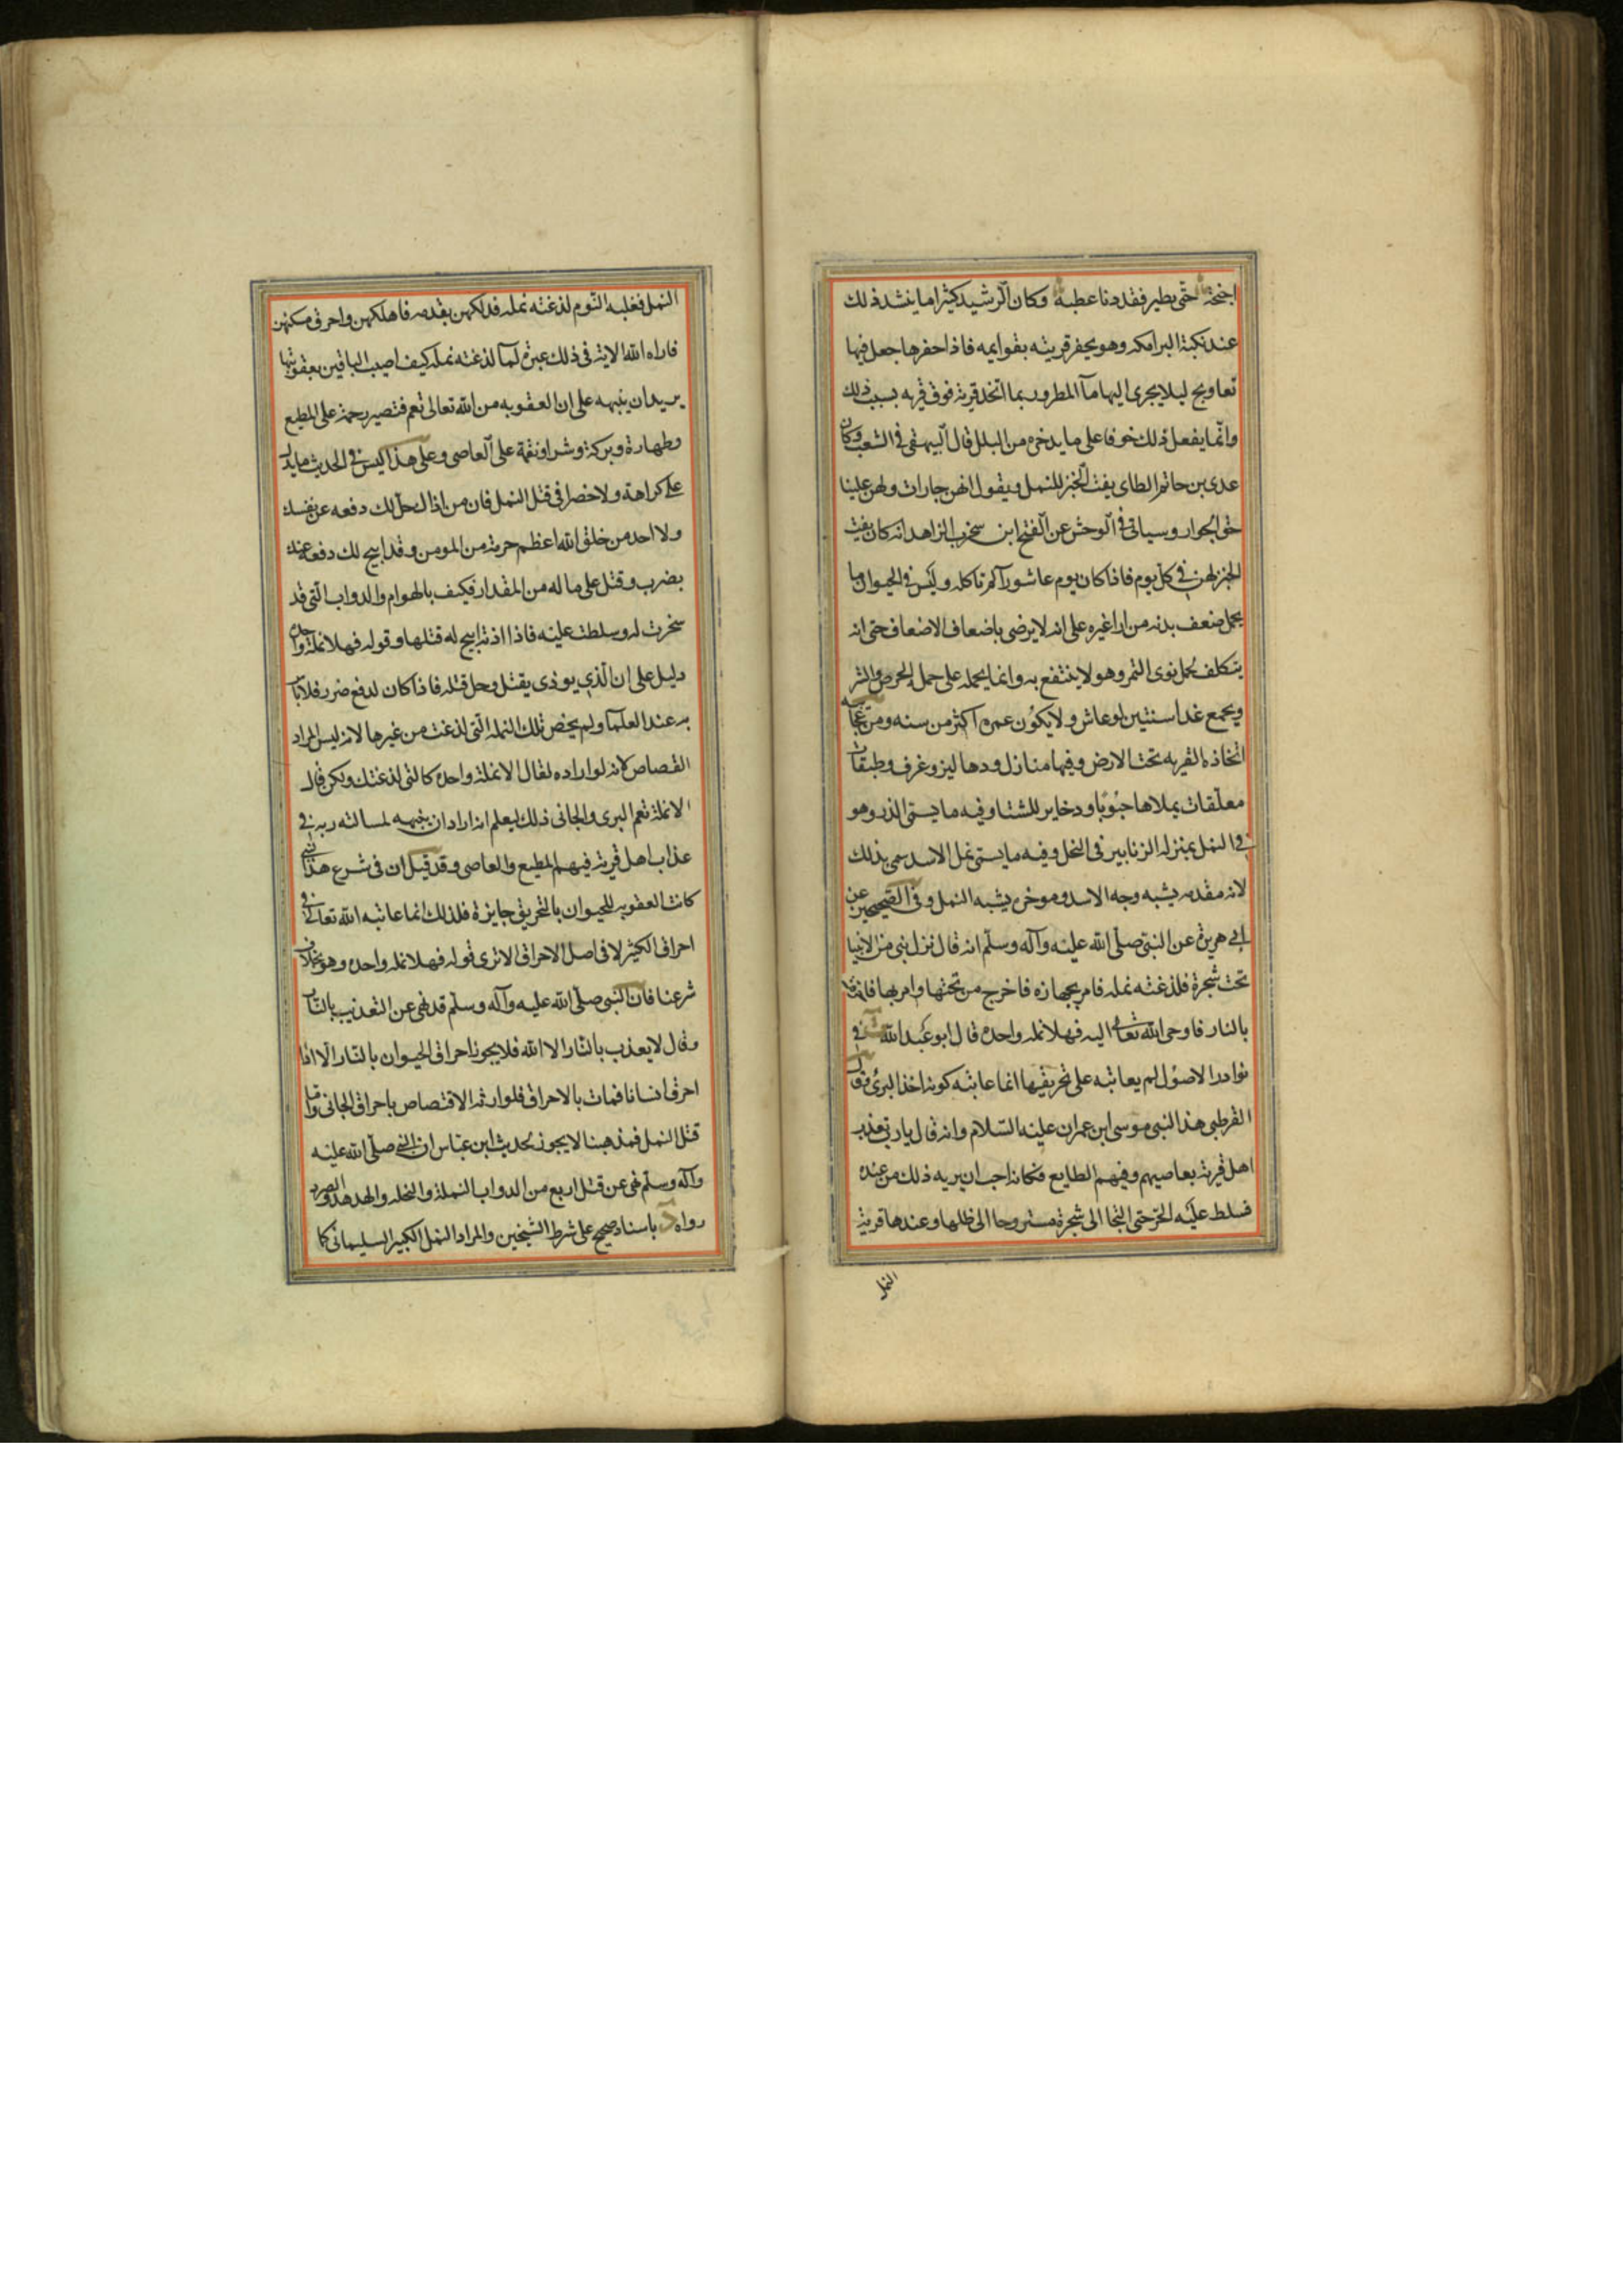 اجنحة حتى يطير فقد دنا عطبه وكان الرشيد كثيرا ما ينشد ذلك
عند نكبة البرامكه وهو يحفر قريته بقوايمه فاذا حفرها جعل فيها
تعاويج ليلا يجرى اليها مآ المطر وربما اتخذ قرية فوق قريه بسبب ذلك
وانما يفعل ذلك خوفا على ما يدخره من البلل قال البيهقى فى الشعب وكان
عدى بن حاتم الطاى يفت الخبز للنمل ويقول انهن جارات ولهن علينا
حق الجوار وسياتى فى الوحش عن الفتح ابن سخرب الزاهد انه كان يفت
الخبز لهن فى كل يوم فاذا كان يوم عاشورآ لم تاكله وليس فى الحيوان ما
يحمل ضعف بدنه مرارا غيره على انه لا يرضى باضعاف الاضعاف حتى انه
يتكلف لحمل نوى التمر وهو لا ينتفع به وانما يحمله على حمله الحرص والشر
ويجمع غدا سنتين لو عاش ولا يكون عمره اكثر من سنه ومن عجايبه
اتخاذه القريه تحت الارض وفيها منازل ودهاليز وغرف وطبقات
معلقات يملاها حبوبا وذخاير للشتا وفيه ما يسمى الذر وهو
فى النمل بمنزله الزنابير فى النحل وفيه ما يسمى نمل الاسد سمى بذلك
لانه مقدمه يشبه وجه الاسد وموخره يشبه النمل وفى الصحيحين عن
ابى هريرة عن النبى صلى الله عليه وآله وسلم انه قال نزل نبى من الانبيا
تحت شجرة فلدغته نمله فامر بجهازه فاخرج من تحتها وامر بها فاحرقت
بالنار فاوحى الله تعالى اليه فهلا نمله واحده قال ابو عبد الله فى
نوادر الاصول لم يعاتبه على تحريقها انما عاتبه كونه اخذ البرى وقال
القرطبى هذا النبى موسى ابن عمران عليه السلام وانه قال يا رب تعذب
اهل قرية بمعاصيهم وفيهم الطايع فكانه احب ان يريه ذلك من عنده
فسلط عليه الحر حتى التجا الى شجرة مستروحا الى ظلها وعندها قرية
النمل
النمل فغلبه النوم لدغته نمله فدلكهن بقدمه فاهلكهن واحرق مسكنهن
فاراه الله الاية فى ذلك عبرة لما لدغته نمله كيف اصيب الباقين بعقوبتها
يريد ان ينبهه على ان العقوبه من الله تعالى تعم فتصير رحمة على المطيع
وطهارة وبركة وشرا ونقمة على العاصى وعلى هذا ليس فى الحديث ما يدل
على كراهة ولا حضرا فى قتل النمل فان من اذاك حل لك دفعه عن نفسك
ولا احد من خلق الله اعظم حرمة من المومن وقد ابيح لك دفعه عنك
بضرب وقتل على ما له من المقدار فكيف بالهوام والدواب التى قد
سخرت له وسلطت عليه فاذا اذته ابيح له قتلها وقوله فهلا نملة واحدة
دليل على ان الذى يوذى يقتل وحل قتله فاذا كان لدفع ضرر فلا باس
به عند العلمآ ولم يخص تلك النمله التى لدغت من غيرها لانه ليس المراد
القصاص لانه لو اراده لقال الا نملة واحده كالتى لدغتك ولكن قال
الا نملة تعم البرى والجانى ذلك ليعلم انه اراد ان ينبهه لمسالته ربه فى
عذاب اهل قرية فيهم المطيع والعاصى وقد قيل ان فى شرع هذا النبى
كانت العقوبه للحيوان بالتحريق جايزة فلذلك انما عاتبه الله تعالى فى
احراق الكثير لا فى اصل الاحراق الا ترى قوله فهلا نمله واحده وهو بخلاف
شرعنا فان النبى صلى الله عليه وآله وسلم قد نهى عن التعذيب بالنار
وقال لا يعذب بالنار الا الله فلا يجوز احراق الحيوان بالنار الا اذا
احرق انسانا فمات بالاحراق فلوارثه الاقتصاص باحراق الجانى واما
قتل النمل فمذهبنا لا يجوز لحديث ابن عباس ان النبى صلى الله عليه
وآله وسلم نهى عن قتل اربع من الدواب النملة والنحله والهدهد والصرد
رواه د باسناد صحيح على شرط الشيخين والمراد النمل الكبير السليمانى كما